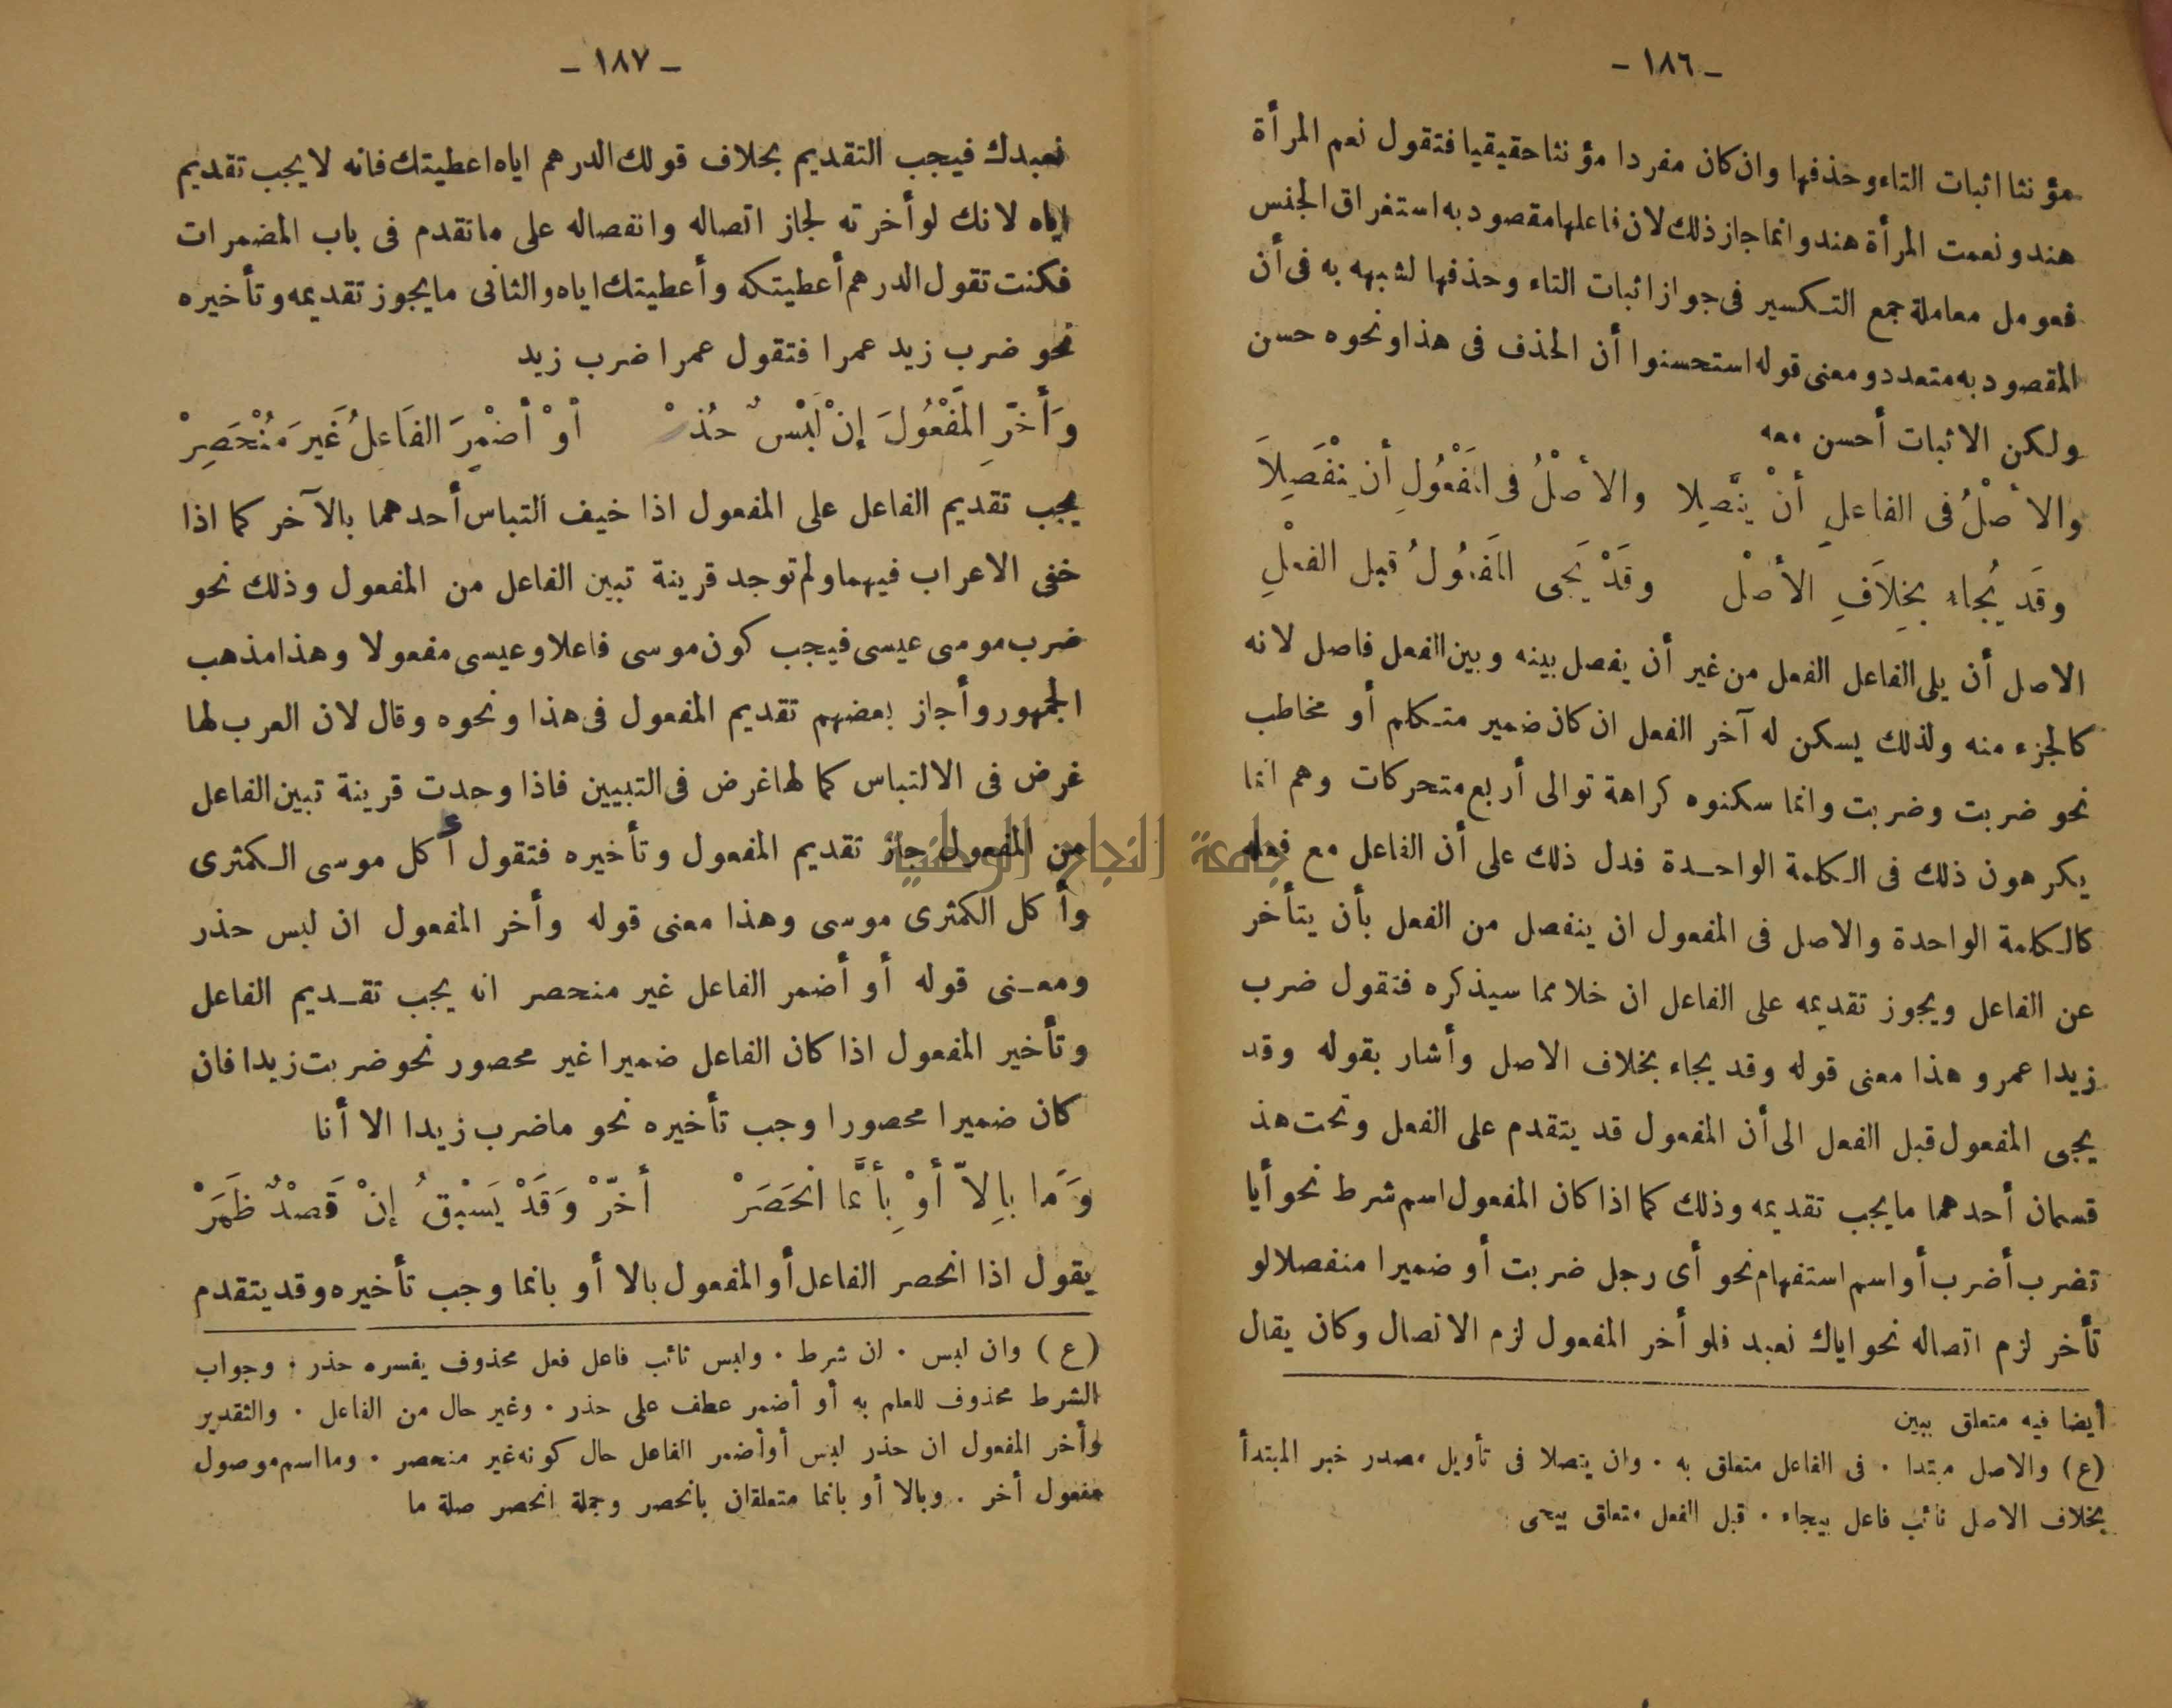 ـ ١٨٦ ـ
مؤنثا اثبات التاء وحذفها وان كان مفردا مؤنثا حقيقيا فتقول نعم المرأة
هند ونعمت المرأة هند وانما جاز ذلك لان فاعلها مقصود به استغراق الجنس
فعومل معاملة جمع التكسير فى جواز اثبات التاء وحذفها لشبهه به فى أن
المقصود به متعدد ومعنى قوله استحسنوا أن الحذف فى هذا ونحوه حسن
ولكن الاثبات أحسن منه
والأصْلُ فى الفاعلِ أنْ يتَّصِلا والأصْلُ فى المَفْعُولِ أن ينْفَصِلاَ
وقَد يُجاءُ بخِلاَفِ الأصْل وقَدْ يَجى المَفعُولُ قبل الفعْلِ
الاصل أن يلى الفاعل الفعل من غير أن يفصل بينه وبين الفعل فاصل لانه
كالجزء منه ولذلك يسكن له آخر الفعل ان كان ضمير متكلم أو مخاطب
نحو ضربت وضربت وانما سكنوه كراهة توالى أربع متحركات وهم انما
يكرهون ذلك فى الكلمة الواحدة فدل ذلك على أن الفاعل مع فعله
كالكلمة الواحدة والاصل فى المفعول ان ينفصل من الفعل بأن يتأخر
عن الفاعل ويجوز تقديمه على الفاعل ان خلا مما سيذكره فتقول ضرب
زيدا عمرو هذا معنى قوله وقد يجاء بخلاف الاصل وأشار بقوله وقد
يجى المفعول قبل الفعل الى أن المفعول قد يتقدم على الفعل وتحت هذ
قسمان أحدهما ما يجب تقديمه وذلك كما اذا كان المفعول اسم شرط نحو أيا
تضرب أضرب أو اسم استفهام نحو أى رجل ضربت أو ضميرا منفصلا لو
تأخر لزم اتصاله نحو اياك نعبد فلو أخر المفعول لزم الاتصال وكان يقال
أيضا فيه متعلق ببين
(ع) والاصل مبتدا . فى الفاعل متعلق به . وان يتصلا فى تأويل مصدر خبر المبتدأ
بخلاف الاصل نائب فاعل بيجاء . قبل الفعل متعلق بيجى
ـ ١٨٧ ـ
نعبدك فيجب التقديم بخلاف قولك الدرهم اياه اعطيتك فانه لا يجب تقديم
اياه لانك لو أخرته لجاز اتصاله وانفصاله على ما تقدم فى باب المضمرات
فكنت تقول الدرهم أعطيتكه وأعطيتك اياه والثانى ما يجوز تقديمه وتأخيره
نحو ضرب زيد عمرا فتقول عمرا ضرب زيد
وَأَخّرِ المَفْعُولَ إنْ لَبْسٌ حُذرْ أوْ أضْمِرَ الفَاعلُ غَيرَ مُنْحَصِرْ
يجب تقديم الفاعل على المفعول اذا خيف التباس أحدهما بالآخر كما اذا
خفى الاعراب فيهما ولم توجد قرينة تبين الفاعل من المفعول وذلك نحو
ضرب موسى عيسى فيجب كون موسى فاعلا وعيسى مفعولا وهذا مذهب
الجمهور وأجاز بعضهم تقديم المفعول فى هذا ونحوه وقال لان العرب لها
غرض فى الالتباس كما لها غرض فى التبيين فاذا وجدت قرينة تبين الفاعل
من المفعول جاز تقديم المفعول وتأخيره فتقول أكل موسى الكمثرى
وأكل الكمثرى موسى وهذا معنى قوله وأخر المفعول ان لبس حذر
ومعنى قوله أو أضمر الفاعل غير منحصر انه يجب تقديم الفاعل
وتأخير المفعول اذا كان الفاعل ضميرا غير محصور نحو ضربت زيدا فان
كان ضميرا محصورا وجب تأخيره نحو ما ضرب زيدا الا أنا
وَمَا بإِلاّ أوْ بِأنَّما انْحَصَرْ أخّرْ وَقَدْ يَسْبقُ إنْ قَصْدٌ ظَهَرْ
يقول اذا انحصر الفاعل أو المفعول بالا أو بانما وجب تأخيره وقد يتقدم
(ع) وان لبس . ان شرط . ولبس نائب فاعل فعل محذوف يفسره حذر . وجواب
الشرط محذوف للعلم به أو أضمر عطف على حذر . وغير حال من الفاعل . والتقدير
وأخر المفعول ان حذر لبس أو أضمر الفاعل حال كونه غير منحصر . وما اسم موصول
مفعول أخر . وبالا أو بانما متعلقان بانحصر وجملة انحصر صلة ما
جامعة النجاح الوطنية